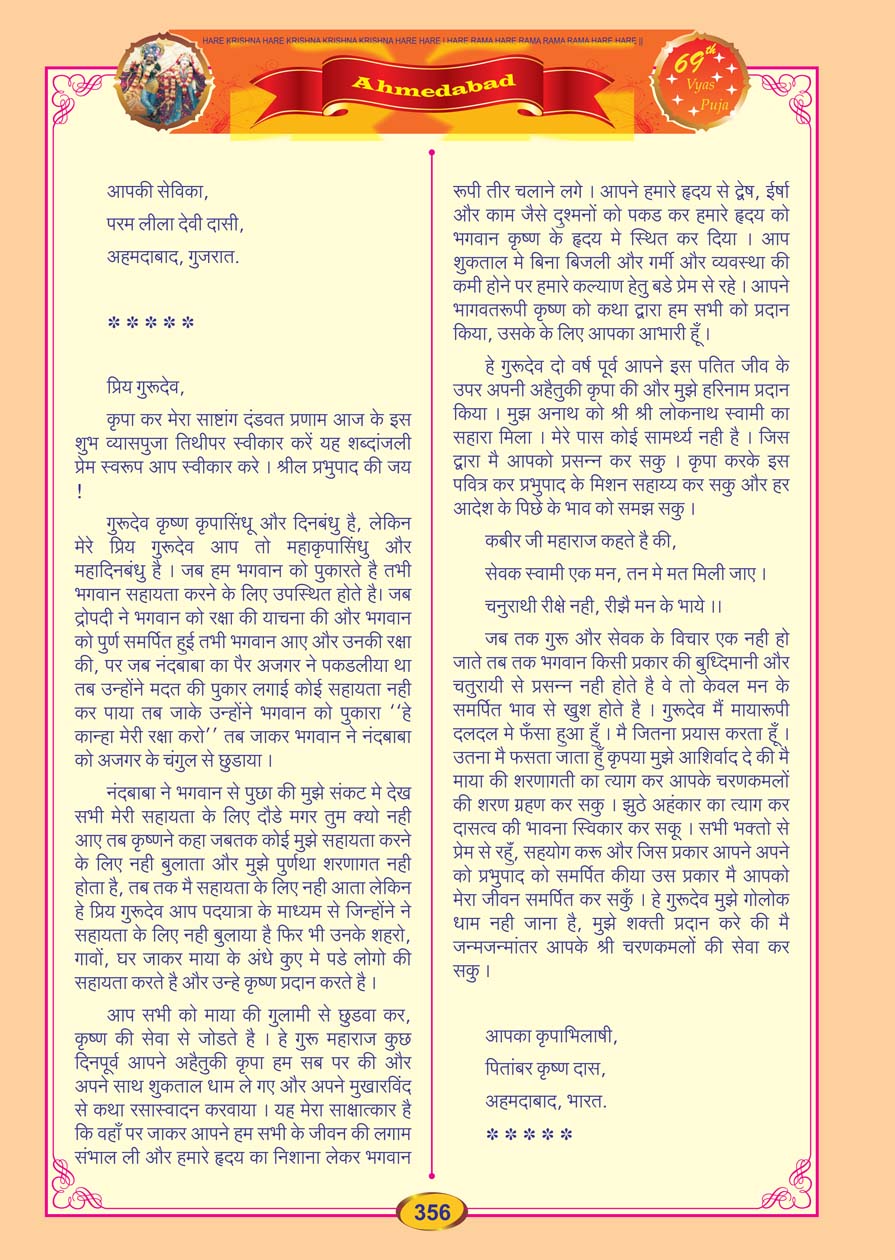 HARE KRISHNA HARE KRISHNA KRISHNA KRISHNA HARE HARE | HARE RAMA HARE RAMA RAMA RAMA HARE HARE ||
Ahmedabad
69th
Vyas
Puja
आपकी सेविका,
परम लीला देवी दासी,
अहमदाबाद, गुजरात.
* * * * *
प्रिय गुरूदेव,
कृपा कर मेरा साष्टांग दंडवत प्रणाम आज के इस
शुभ व्यासपुजा तिथीपर स्वीकार करें यह शब्दांजली
प्रेम स्वरूप आप स्वीकार करे । श्रील प्रभुपाद की जय
!
गुरूदेव कृष्ण कृपासिंधू और दिनबंधु है, लेकिन
मेरे प्रिय गुरूदेव आप तो महाकृपासिंधु और
महादिनबंधु है । जब हम भगवान को पुकारते है तभी
भगवान सहायता करने के लिए उपस्थित होते है। जब
द्रोपदी ने भगवान को रक्षा की याचना की और भगवान
को पुर्ण समर्पित हुई तभी भगवान आए और उनकी रक्षा
की, पर जब नंदबाबा का पैर अजगर ने पकडलीया था
तब उन्होंने मदत की पुकार लगाई कोई सहायता नही
कर पाया तब जाके उन्होंने भगवान को पुकारा ‘‘हे
कान्हा मेरी रक्षा करो’’ तब जाकर भगवान ने नंदबाबा
को अजगर के चंगुल से छुडाया ।
नंदबाबा ने भगवान से पुछा की मुझे संकट मे देख
सभी मेरी सहायता के लिए दौडे मगर तुम क्यो नही
आए तब कृष्णने कहा जबतक कोई मुझे सहायता करने
के लिए नही बुलाता और मुझे पुर्णथा शरणागत नही
होता है, तब तक मै सहायता के लिए नही आता लेकिन
हे प्रिय गुरूदेव आप पदयात्रा के माध्यम से जिन्होंने ने
सहायता के लिए नही बुलाया है फिर भी उनके शहरो,
गावों, घर जाकर माया के अंधे कुए मे पडे लोगो की
सहायता करते है और उन्हे कृष्ण प्रदान करते है ।
आप सभी को माया की गुलामी से छुडवा कर,
कृष्ण की सेवा से जोडते है । हे गुरू महाराज कुछ
दिनपूर्व आपने अहैतुकी कृपा हम सब पर की और
अपने साथ शुकताल धाम ले गए और अपने मुखारविंद
से कथा रसास्वादन करवाया । यह मेरा साक्षात्कार है
कि वहाँ पर जाकर आपने हम सभी के जीवन की लगाम
संभाल ली और हमारे हृदय का निशाना लेकर भगवान
रूपी तीर चलाने लगे । आपने हमारे हृदय से द्वेष, ईर्षा
और काम जैसे दुश्मनों को पकड कर हमारे हृदय को
भगवान कृष्ण के हृदय मे स्थित कर दिया । आप
शुकताल मे बिना बिजली और गर्मी और व्यवस्था की
कमी होने पर हमारे कल्याण हेतु बडे प्रेम से रहे । आपने
भागवतरूपी कृष्ण को कथा द्वारा हम सभी को प्रदान
किया, उसके के लिए आपका आभारी हूँ ।
हे गुरूदेव दो वर्ष पूर्व आपने इस पतित जीव के
उपर अपनी अहैतुकी कृपा की और मुझे हरिनाम प्रदान
किया । मुझ अनाथ को श्री श्री लोकनाथ स्वामी का
सहारा मिला । मेरे पास कोई सामर्थ्य नही है । जिस
द्वारा मै आपको प्रसन्न कर सकु । कृपा करके इस
पवित्र कर प्रभुपाद के मिशन सहाय्य कर सकु और हर
आदेश के पिछे के भाव को समझ सकु ।
कबीर जी महाराज कहते है की,
सेवक स्वामी एक मन, तन मे मत मिली जाए ।
चनुराथी रीक्षे नही, रीझै मन के भाये ।।
जब तक गुरू और सेवक के विचार एक नही हो
जाते तब तक भगवान किसी प्रकार की बुध्दिमानी और
चतुरायी से प्रसन्न नही होते है वे तो केवल मन के
समर्पित भाव से खुश होते है । गुरूदेव मैं मायारूपी
दलदल मे फँसा हुआ हूँ । मै जितना प्रयास करता हूँ ।
उतना मै फसता जाता हूँ कृपया मुझे आशिर्वाद दे की मै
माया की शरणागती का त्याग कर आपके चरणकमलों
की शरण ग्रहण कर सकु । झुठे अहंकार का त्याग कर
दासत्व की भावना स्विकार कर सकू । सभी भक्तो से
प्रेम से रहुँ, सहयोग करू और जिस प्रकार आपने अपने
को प्रभुपाद को समर्पित कीया उस प्रकार मै आपको
मेरा जीवन समर्पित कर सकुँ । हे गुरूदेव मुझे गोलोक
धाम नही जाना है, मुझे शक्ती प्रदान करे की मै
जन्मजन्मांतर आपके श्री चरणकमलों की सेवा कर
सकु ।
आपका कृपाभिलाषी,
पितांबर कृष्ण दास,
अहमदाबाद, भारत.
* * * * *
356